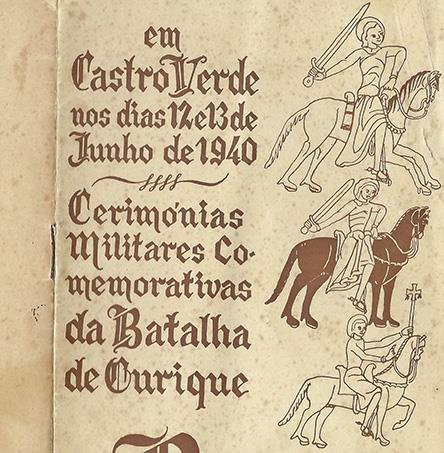 em
Castro Verde
nos dias 12 e 13 de
Junho de 1940
Cerimónias
Militares Co-
memorativas
da Batalha
de Ourique